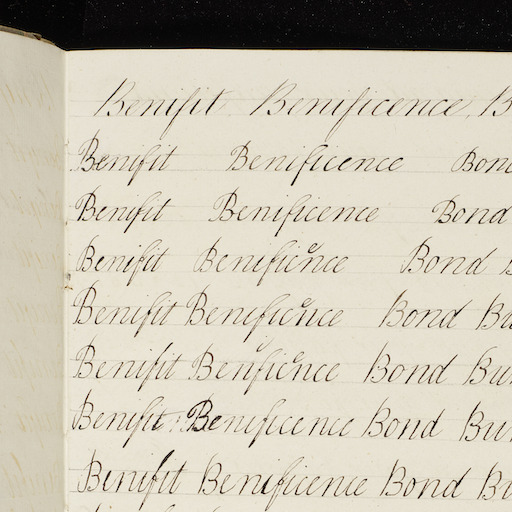 Benifit Benificence, B
Benifit Benificence Bond
Benifit Benificence Bond
Benifit Benificence Bond
Benifit Benificence Bond Bu
Benifit Benificence Bond Bu
Benifit Benificence Bond Bu
Benifit Benificence Bond Bu